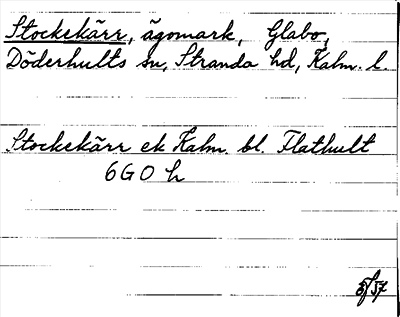 Stockekärr, ägomark, Glabo,
Döderhults sn, Stranda hd, Kalm. l.
Stockekärr ek Kalm. bl. Flathult
6G0 h